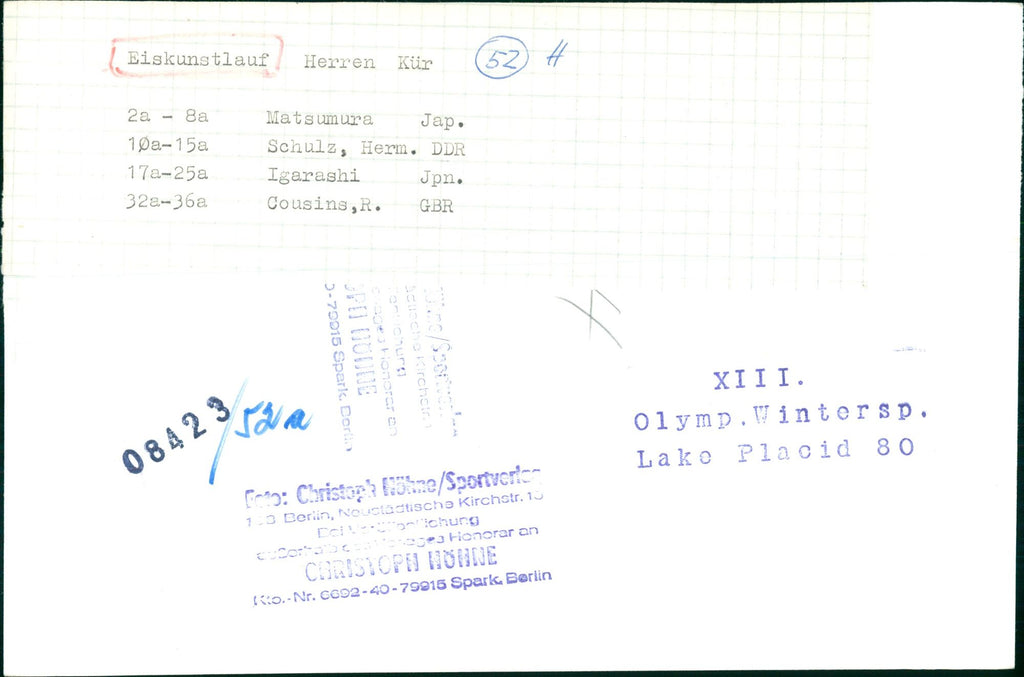 Eiskunstlauf Herren Kür 52 H
2a - 8a Matsumura Jap.
10a-15a Schulz, Herm. DDR
17a-25a Igarashi Jpn.
32a-36a Cousins,R. GBR
XIII.
Olymp.Wintersp.
Lake Placid 80
08423/52a
Foto: Christoph Höhne/Sportverlag
Berlin, Neustädtische Kirchstr. 15
Bei Veröffentlichung
außerhalb des Verlages Honorar an
CHRISTOPH HÖHNE
Kto.-Nr. 6692-40-79915 Spark. Berlin
Sportver
Kirchstr.
Honorar an
HÖHNE
79915 Spark. Berlin